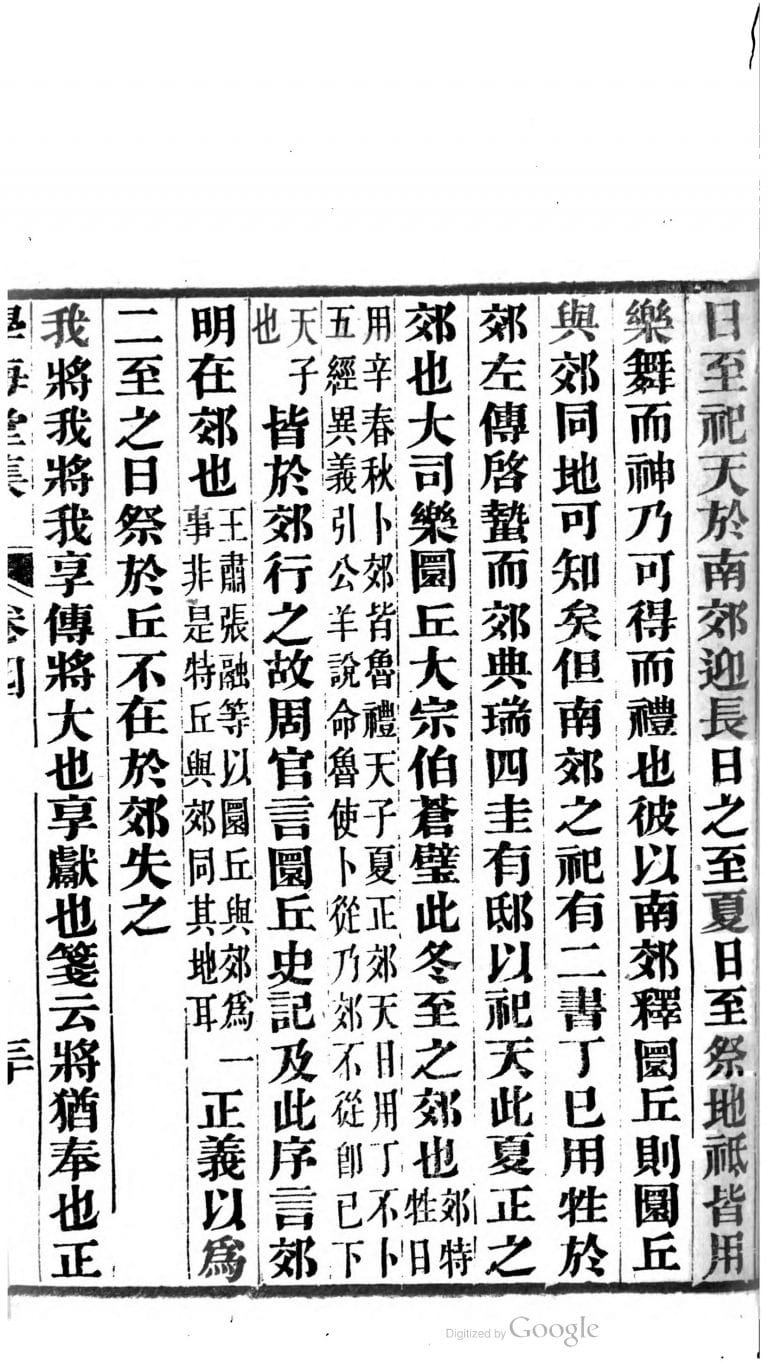 日至祀天於南郊迎長日之至夏日至祭地祗皆用
樂舞而神乃可得而禮也彼以南郊釋圜丘則圜丘
與郊同地可知矣但南郊之祀有二書丁巳用牲於
郊左傳啓蟄而郊典瑞四圭有邸以祀天此夏正之
郊也大司樂圜丘大宗伯蒼璧此冬至之郊也郊特
牲曰
用辛春秋卜郊皆魯禮天子夏正郊天日用丁不卜
五經異義引公羊說命魯使卜從乃郊不從卽已下
天子
也
皆於郊行之故周官言圜丘史記及此序言郊
明在郊也王肅張融等以圜丘與郊爲一
事非是特丘與郊同其地耳
正義以爲
二至之日祭於丘不在於郊失之
我將我將我享傳將大也享獻也箋云將猶奉也正
學海堂集 卷四
Digitized by Google